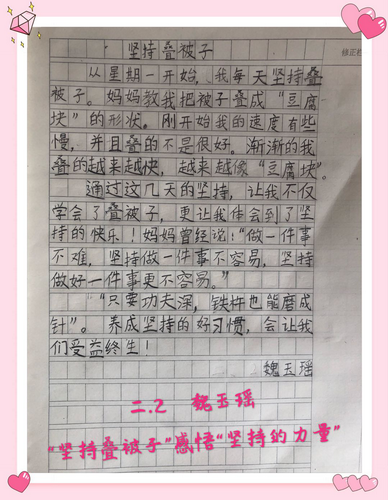 坚持叠被子
从星期一开始,我每天坚持叠
被子。妈妈教我把被子叠成“豆腐
块”的形状。刚开始我的速度有些
慢,并且叠的不是很好。渐渐的我
叠的越来越快,越来越像“豆腐块”。
通过这几天的坚持,让我不仅
学会了叠被子,更让我体会到了坚
持的快乐!妈妈曾经说:“做一件事
不难,坚持做一件事不容易,坚持
做好一件事更不容易。”
“只要功夫深,铁杵也能磨成
针”。养成坚持的好习惯,会让我
们受益终生!
魏玉瑶
二.2 魏玉瑶
“坚持叠被子”感悟“坚持的力量”